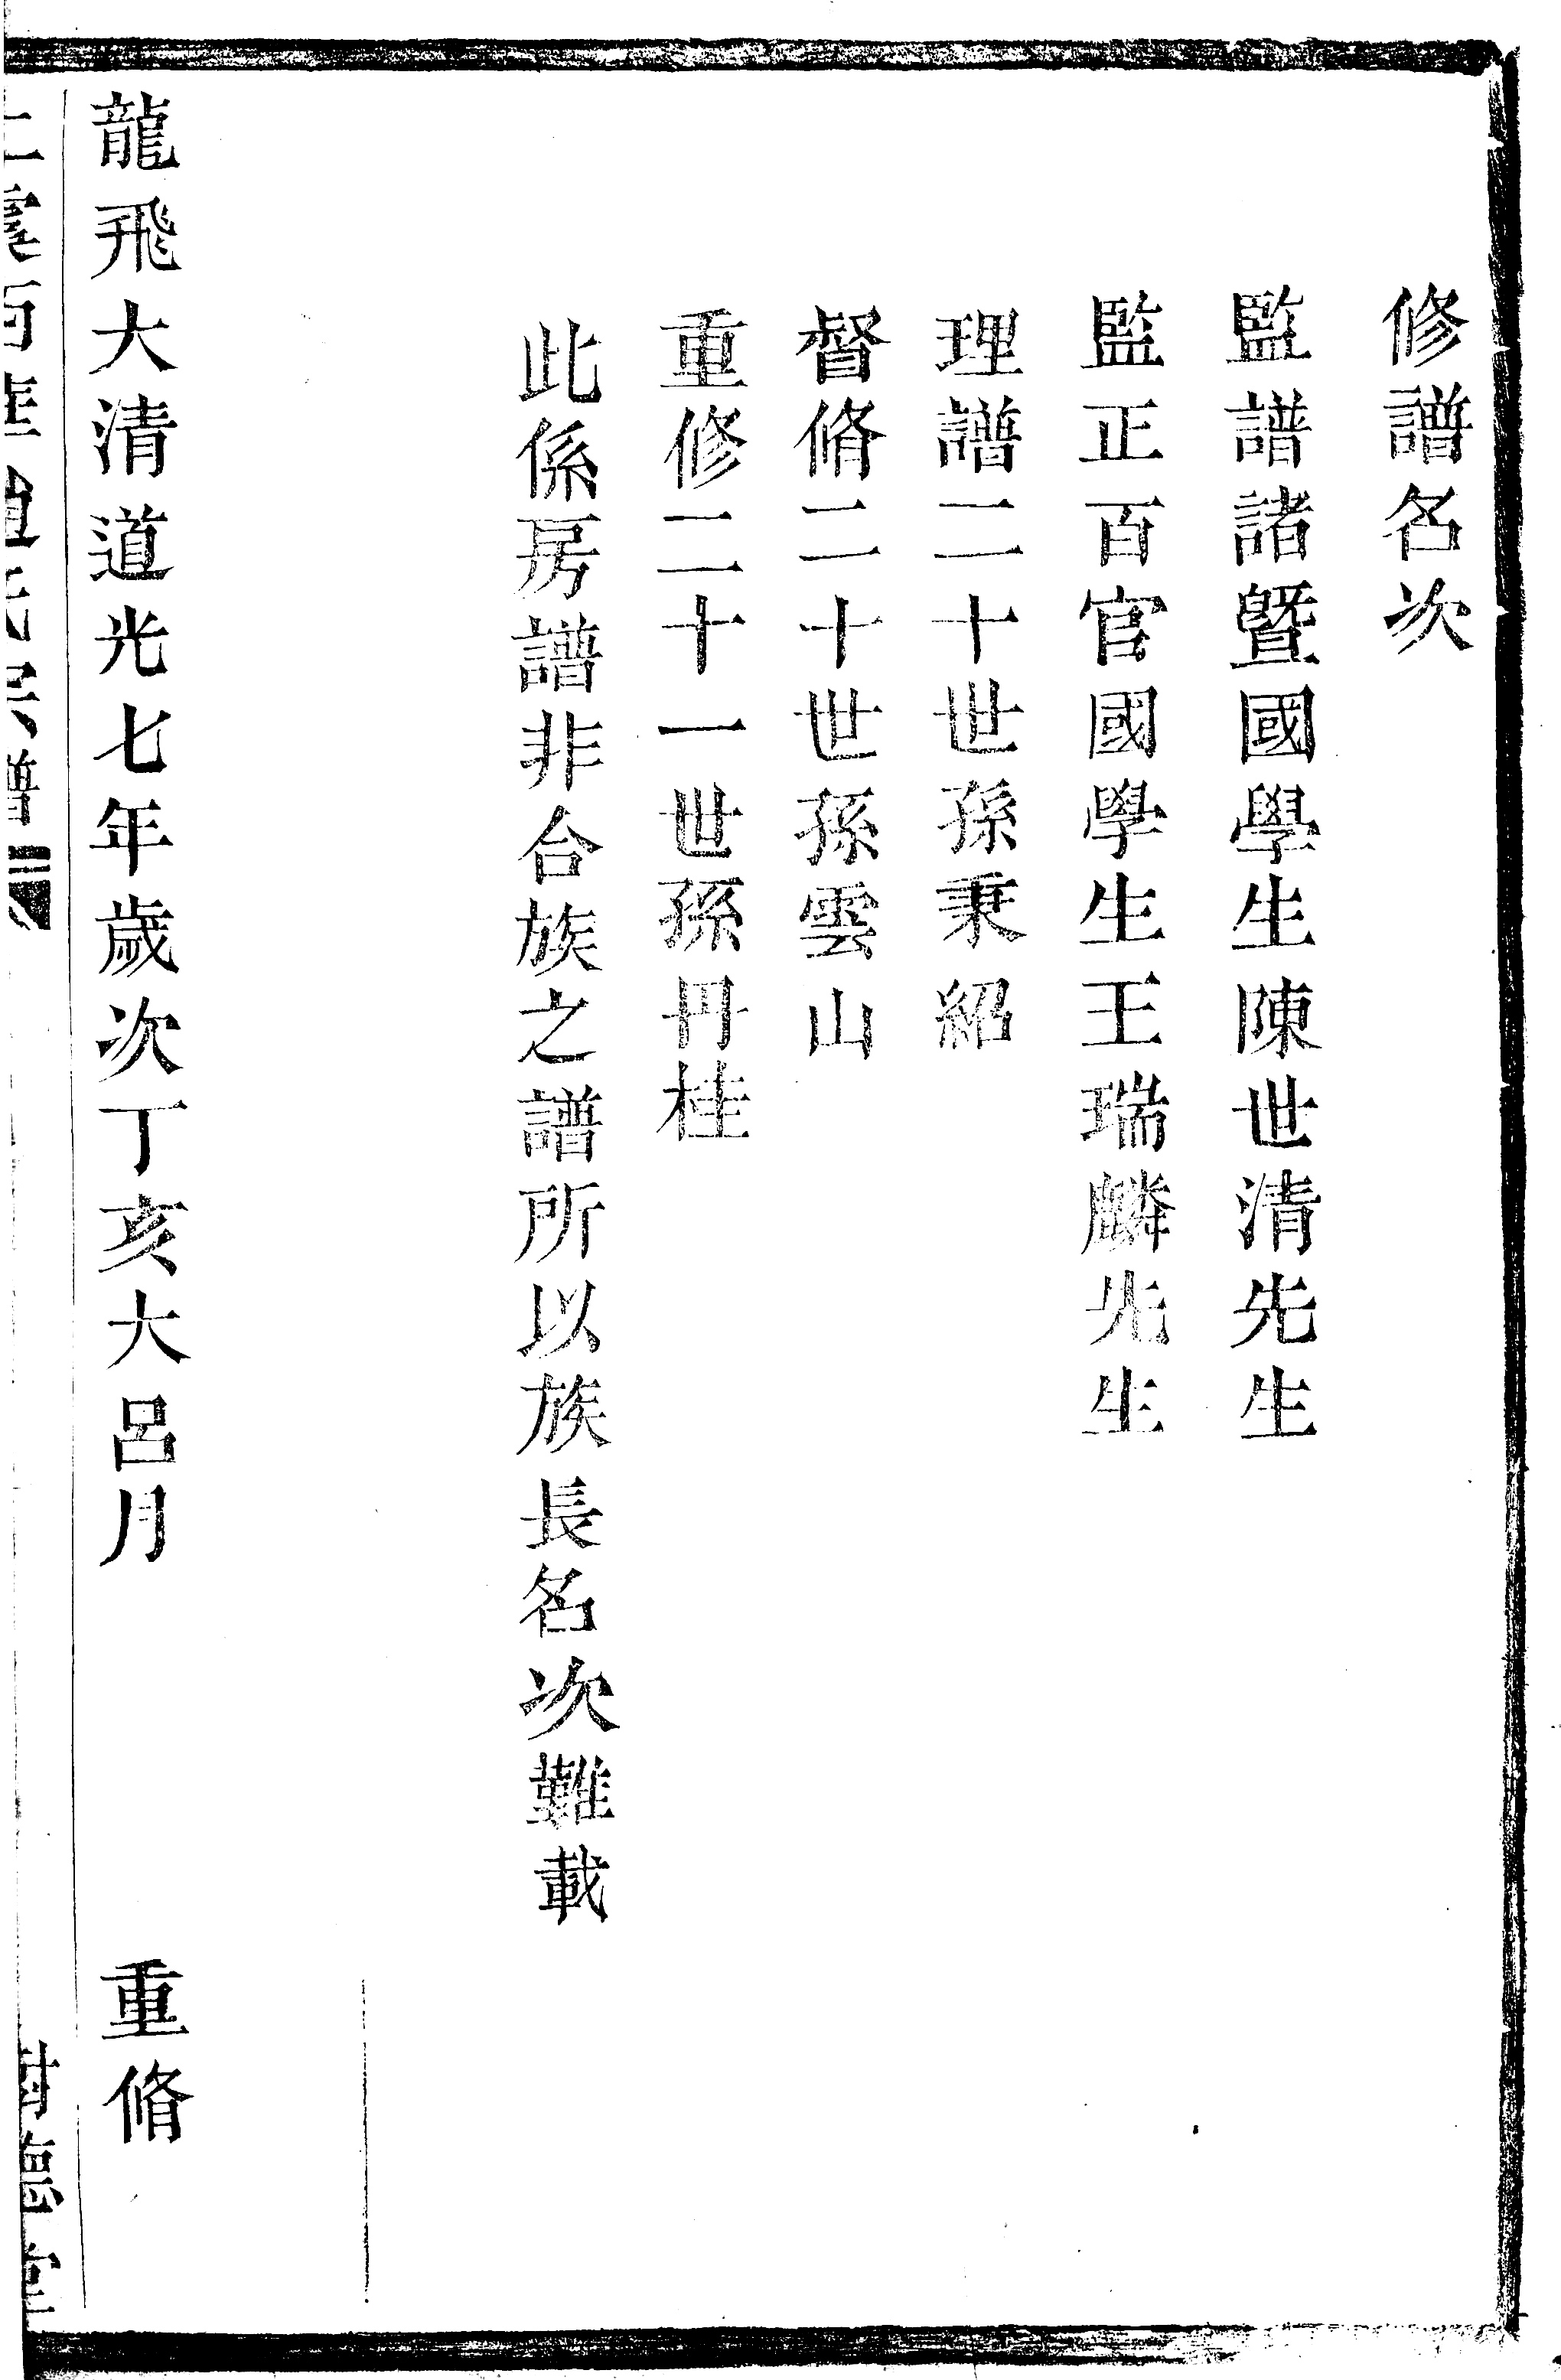 修譜名次
監譜諸暨國學生陳世清先生
監正百官國學生王瑞麟先生
理譜二十世孫秉紹
督脩二十世孫雲山
重修二十一世孫丹桂
此係房譜非合族之譜所以族長名次難載
龍飛大清道光七年歲次丁亥大呂月 重脩